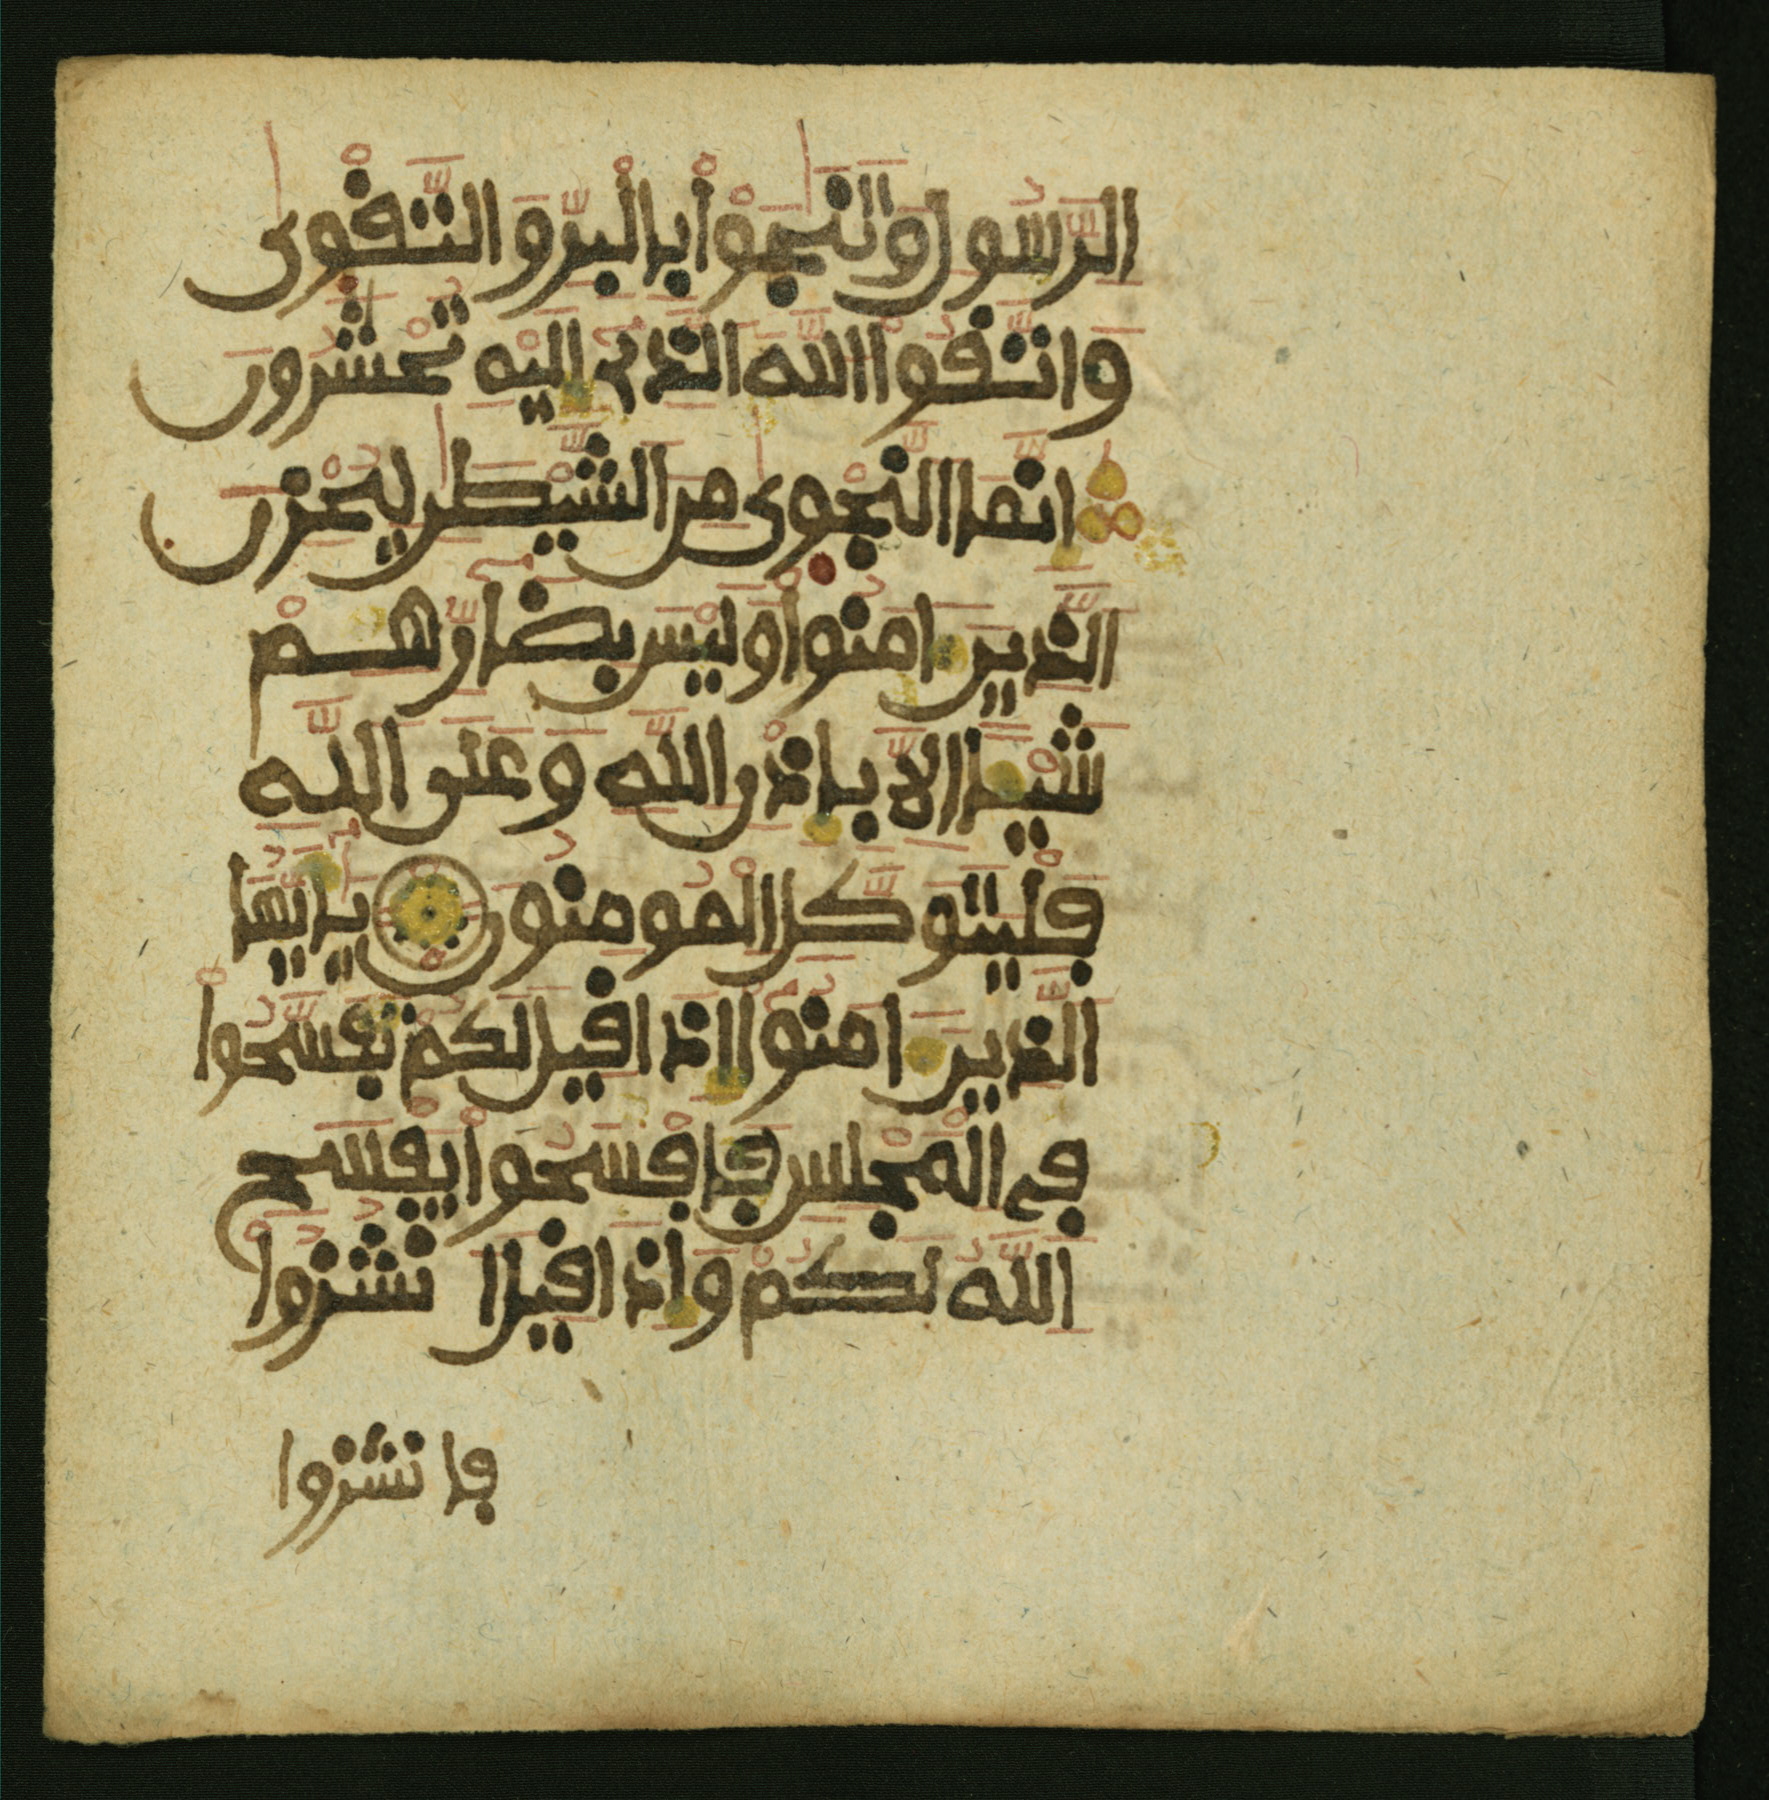 الرَّسُولِ وَتَنَٰجَوْاْ بِالْبِرِّ وَالتَّقْوٰى
وَاتَّقُواْ اللَّهَ الَّذِےٓ إِلَيْهِ تُحْشَرُونَ
إِنَّمَا النَّجْوٰى مِنَ الشَّيْطَٰنِ لِيُحْزِنَ
الَّذِينَ ءَامَنُواْ وَلَيْسَ بِضَآرِّهِمْ
شَيْـًٔا اِلَّا بِإِذْنِ اللَّهِ وَعَلَى اللَّهِ
فَلْيَتَوَكَّلِ الْمُومِنُونَ يَٰٓأَيُّهَا
الَّذِينَ ءَامَنُوٓاْ إِذَا قِيلَ لَكُمْ تَفَسَّحُواْ
فِے الْمَجْلِسِ فَافْسَحُواْ يَفْسَحِ
اللَّهُ لَكُمْ وَإِذَا قِيلَ انشُزُواْ
فانشزوا